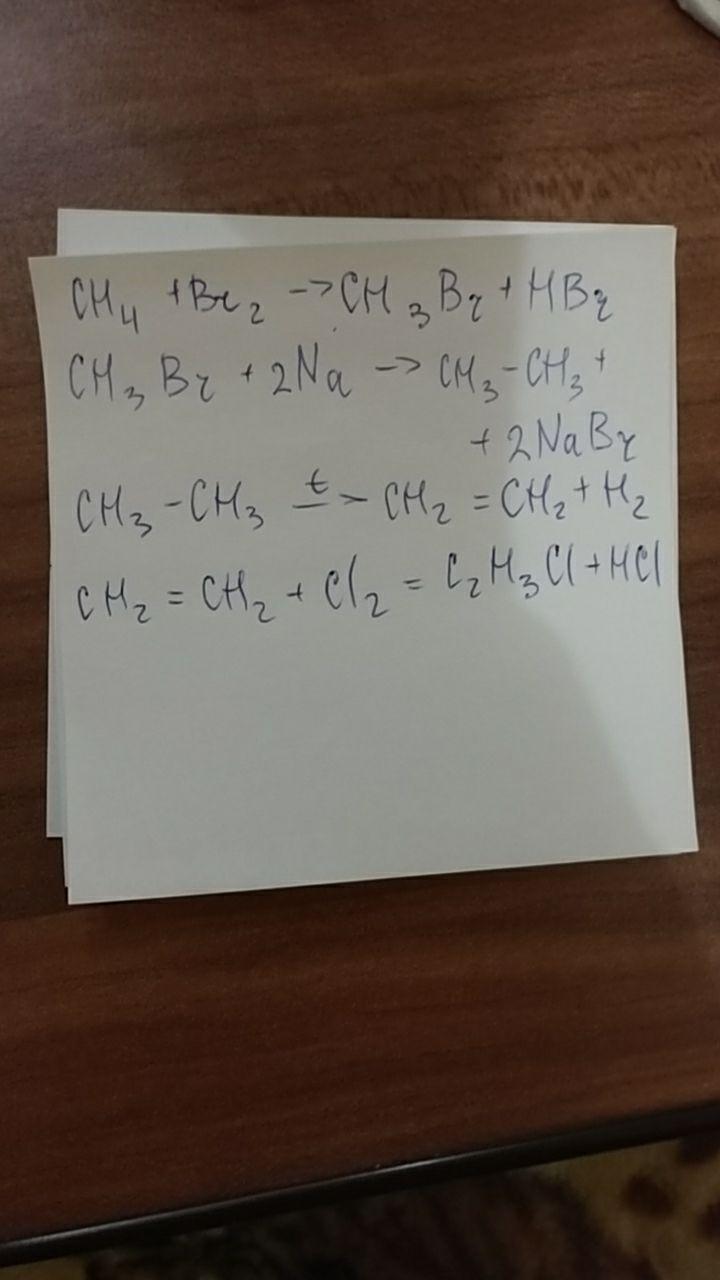 CH₄ + Br₂ -> CH₃Br + HBr
CH₃Br + 2Na -> CH₃-CH₃ +
+ 2NaBr
CH₃-CH₃ t-> CH₂ = CH₂ + H₂
CH₂ = CH₂ + Cl₂ = C₂H₃Cl + HCl